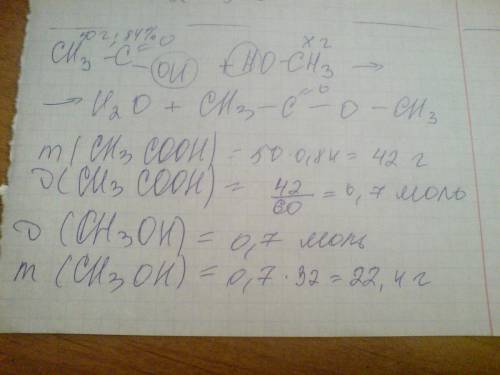 50 г, 84% x г
CH₃-C(=O)-OH + HO-CH₃ →
→ H₂O + CH₃-C(=O)-O-CH₃
m(CH₃COOH) = 50·0,84 = 42 г
ν(CH₃COOH) = 42/60 = 0,7 моль
ν(CH₃OH) = 0,7 моль
m(CH₃OH) = 0,7·32 = 22,4 г